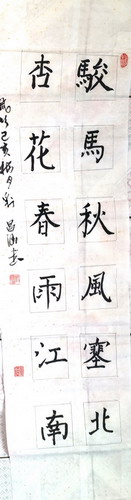 駿馬秋風塞北
杏花春雨江南
歲次己亥